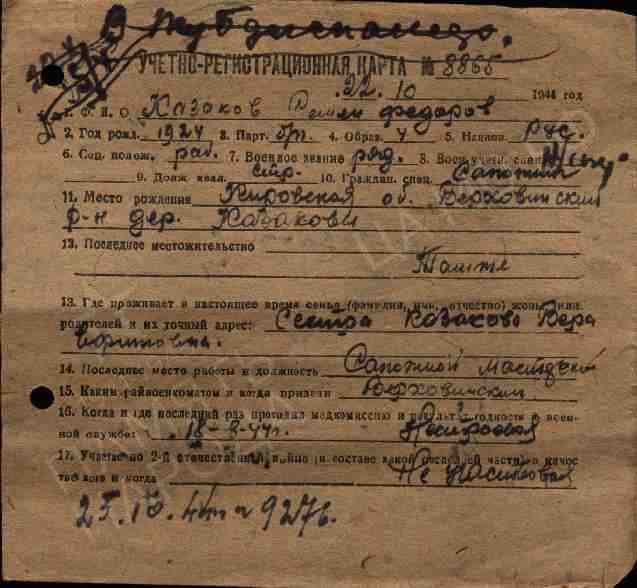 В
УЧЕТНО-РЕГИСТРАЦИОННАЯ КАРТА № 8865
22. 10 1944 год
1. Ф. И. О. Казаков Федоров
2. Год рожд. 1924 3. Парт. б/п. 4. Образ. 4 5. Национ. рус.
6. Соц. полож. раб. 7. Военное звание ряд. 8. Воен. учетн. спец.
9. Долж. квал. стр. 10. Граждан. спец. Сапожник
11. Место рождения Кировская об. Верховинский
р-н дер. Казаковы
12. Последнее местожительство
Там же
13. Где проживает в настоящее время семья (фамилия, имя, отчество) жены, или
родителей и их точный адрес: Сестра Казакова Вера
14. Последнее место работы и должность Сапожной
15. Каким райвоенкоматом и когда призван Верховинским
16. Когда и где последний раз проходил медкомиссию и результат годности к воен-
ной службе 18-8-44г.
17. Участие во 2-й отечественной войне (в составе какой последней части) в качес
тве кого и когда Не
25.10.44г 9276.